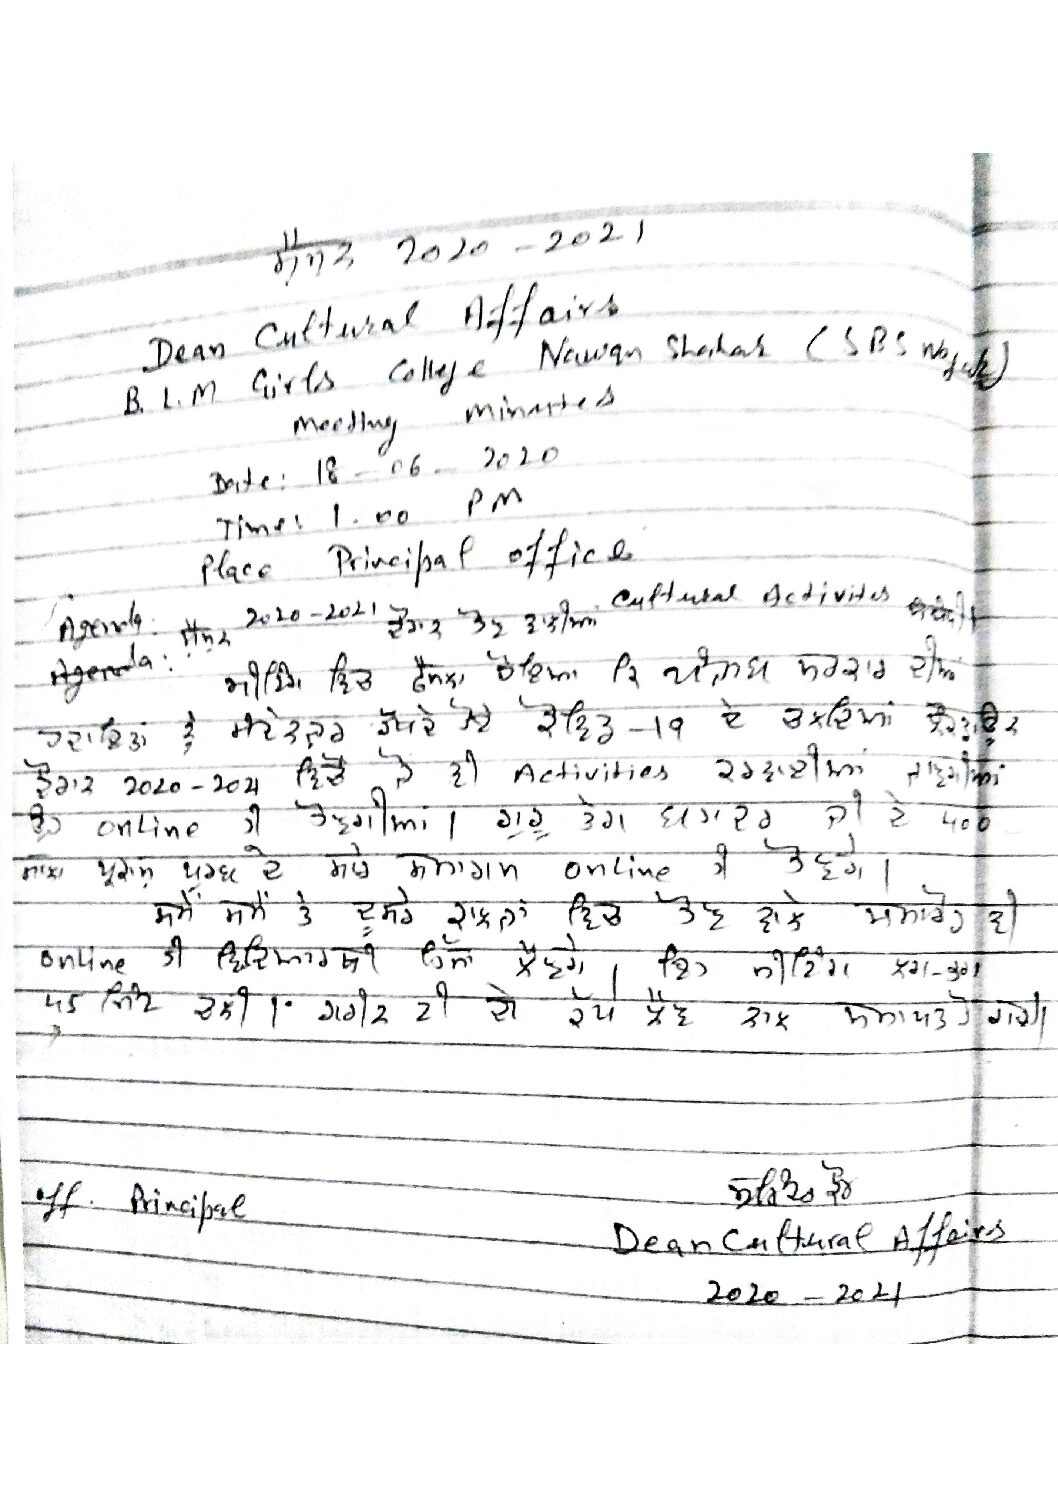 ਸੈਸ਼ਨ 2020 - 2021
Dean Cultural Affairs
B.L.M Girls College Nawan Shahar (SBS Nagar)
Meeting Minutes
Date: 18-06-2020
Time: 1.00 PM
Place Principal office
Agenda: ਸੈਸ਼ਨ 2020-2021 ਦੌਰਾਨ ਹੋਣ ਵਾਲੀਆਂ Cultural Activites
Agenda:
ਮੀਟਿੰਗ ਵਿਚ ਫੈਸਲਾ ਹੋਇਆ ਕਿ ਪੰਜਾਬ ਸਰਕਾਰ ਦੀਆਂ
ਹਦਾਇਤਾਂ ਨੂੰ ਮੱਦੇਨਜ਼ਰ ਰੱਖਦੇ ਹੋਏ ਕੋਵਿਡ-19 ਦੇ ਚਲਦਿਆਂ
ਦੌਰਾਨ 2020-2021 ਵਿੱਚ ਜੋ ਵੀ Activities ਕਰਵਾਈਆਂ ਜਾਣਗੀਆਂ
ਉਹ online ਹੀ ਹੋਣਗੀਆਂ। ਗੁਰੂ ਤੇਗ ਬਹਾਦਰ ਜੀ ਦੇ 400
ਸਾਲਾ ਪ੍ਰਕਾਸ਼ ਪੁਰਬ ਦੇ ਸਾਰੇ ਸਮਾਗਮ online ਹੀ ਹੋਣਗੇ।
ਸਮੇਂ ਸਮੇਂ ਤੇ ਦੂਸਰੇ ਕਾਲਜਾਂ ਵਿਚ ਹੋਣ ਵਾਲੇ ਸਮਾਰੋਹ ਵੀ
online ਹੀ ਵਿਦਿਆਰਥੀ ਹਿੱਸਾ ਲੈਣਗੇ। ਇਹ ਮੀਟਿੰਗ ਲਗ-ਭਗ
ਮਿੰਟ ਚਲੀ। ਮੀਟਿੰਗ ਟੀ ਦੇ ਕੱਪ ਲੈਣ ਨਾਲ ਸਮਾਪਤ ਹੋ ਗਈ।
off. Principal
Dean Cultural Affairs
2020 - 2021